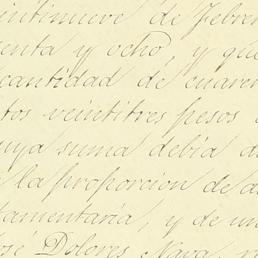 eintinueve de Febrer
enta y ocho, y que
cantidad de cuaren
tos veintitres pesos
uya suma debia d
la proporcion de d
tamentaría, y de un
José Dolores Nava, r